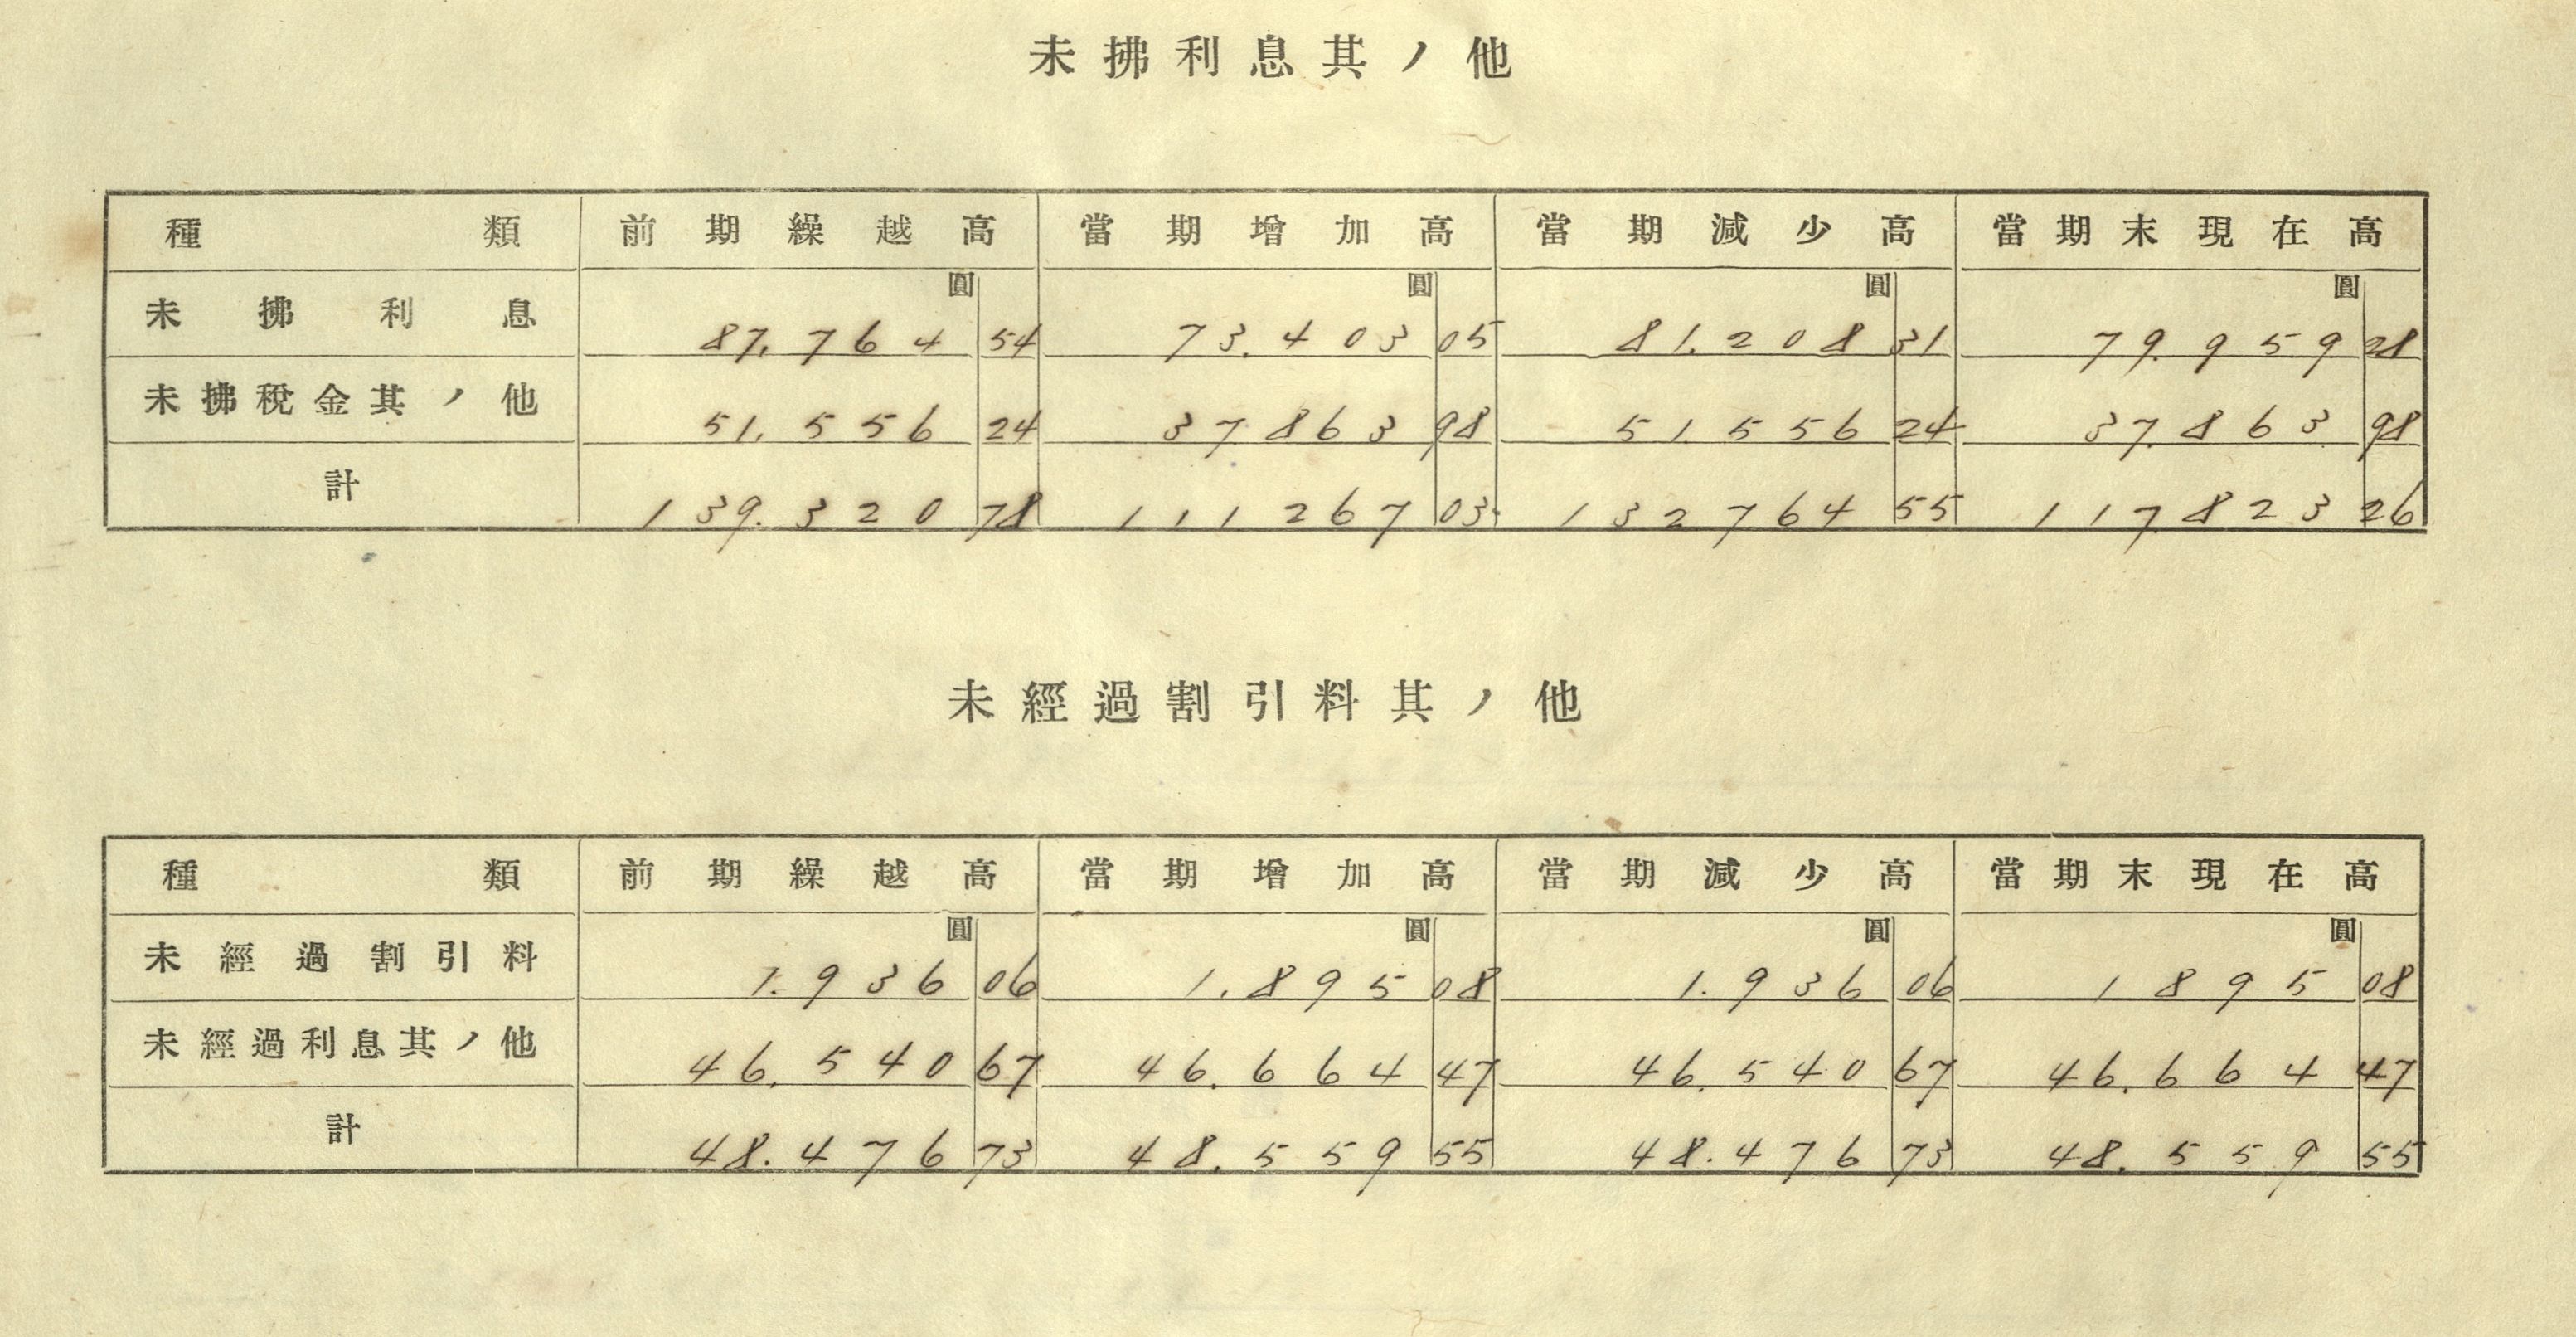 未拂利息其ノ他
種類 前期繰越高 當期增加高 當期減少高 當期末現在高
圓 圓 圓 圓
未拂利息 87,764 54 73.403 05 81.208 31 79.959 28
未拂稅金其ノ他 51,556 24 37863 98 51.556 24 37.863 98
計 139.320 78 111267 03 132764 55 117.823 26
未經過割引料其ノ他
種類 前期繰越高 當期增加高 當期減少高 當期末現在高
圓 圓 圓 圓
未經過割引料 1.936 06 1.895 08 1.936 06 1895 08
未經過利息其ノ他 46.540 67 46.664 47 46.540 67 46.664 47
計 48.476 73 48.559 55 48.476 73 48.559 55